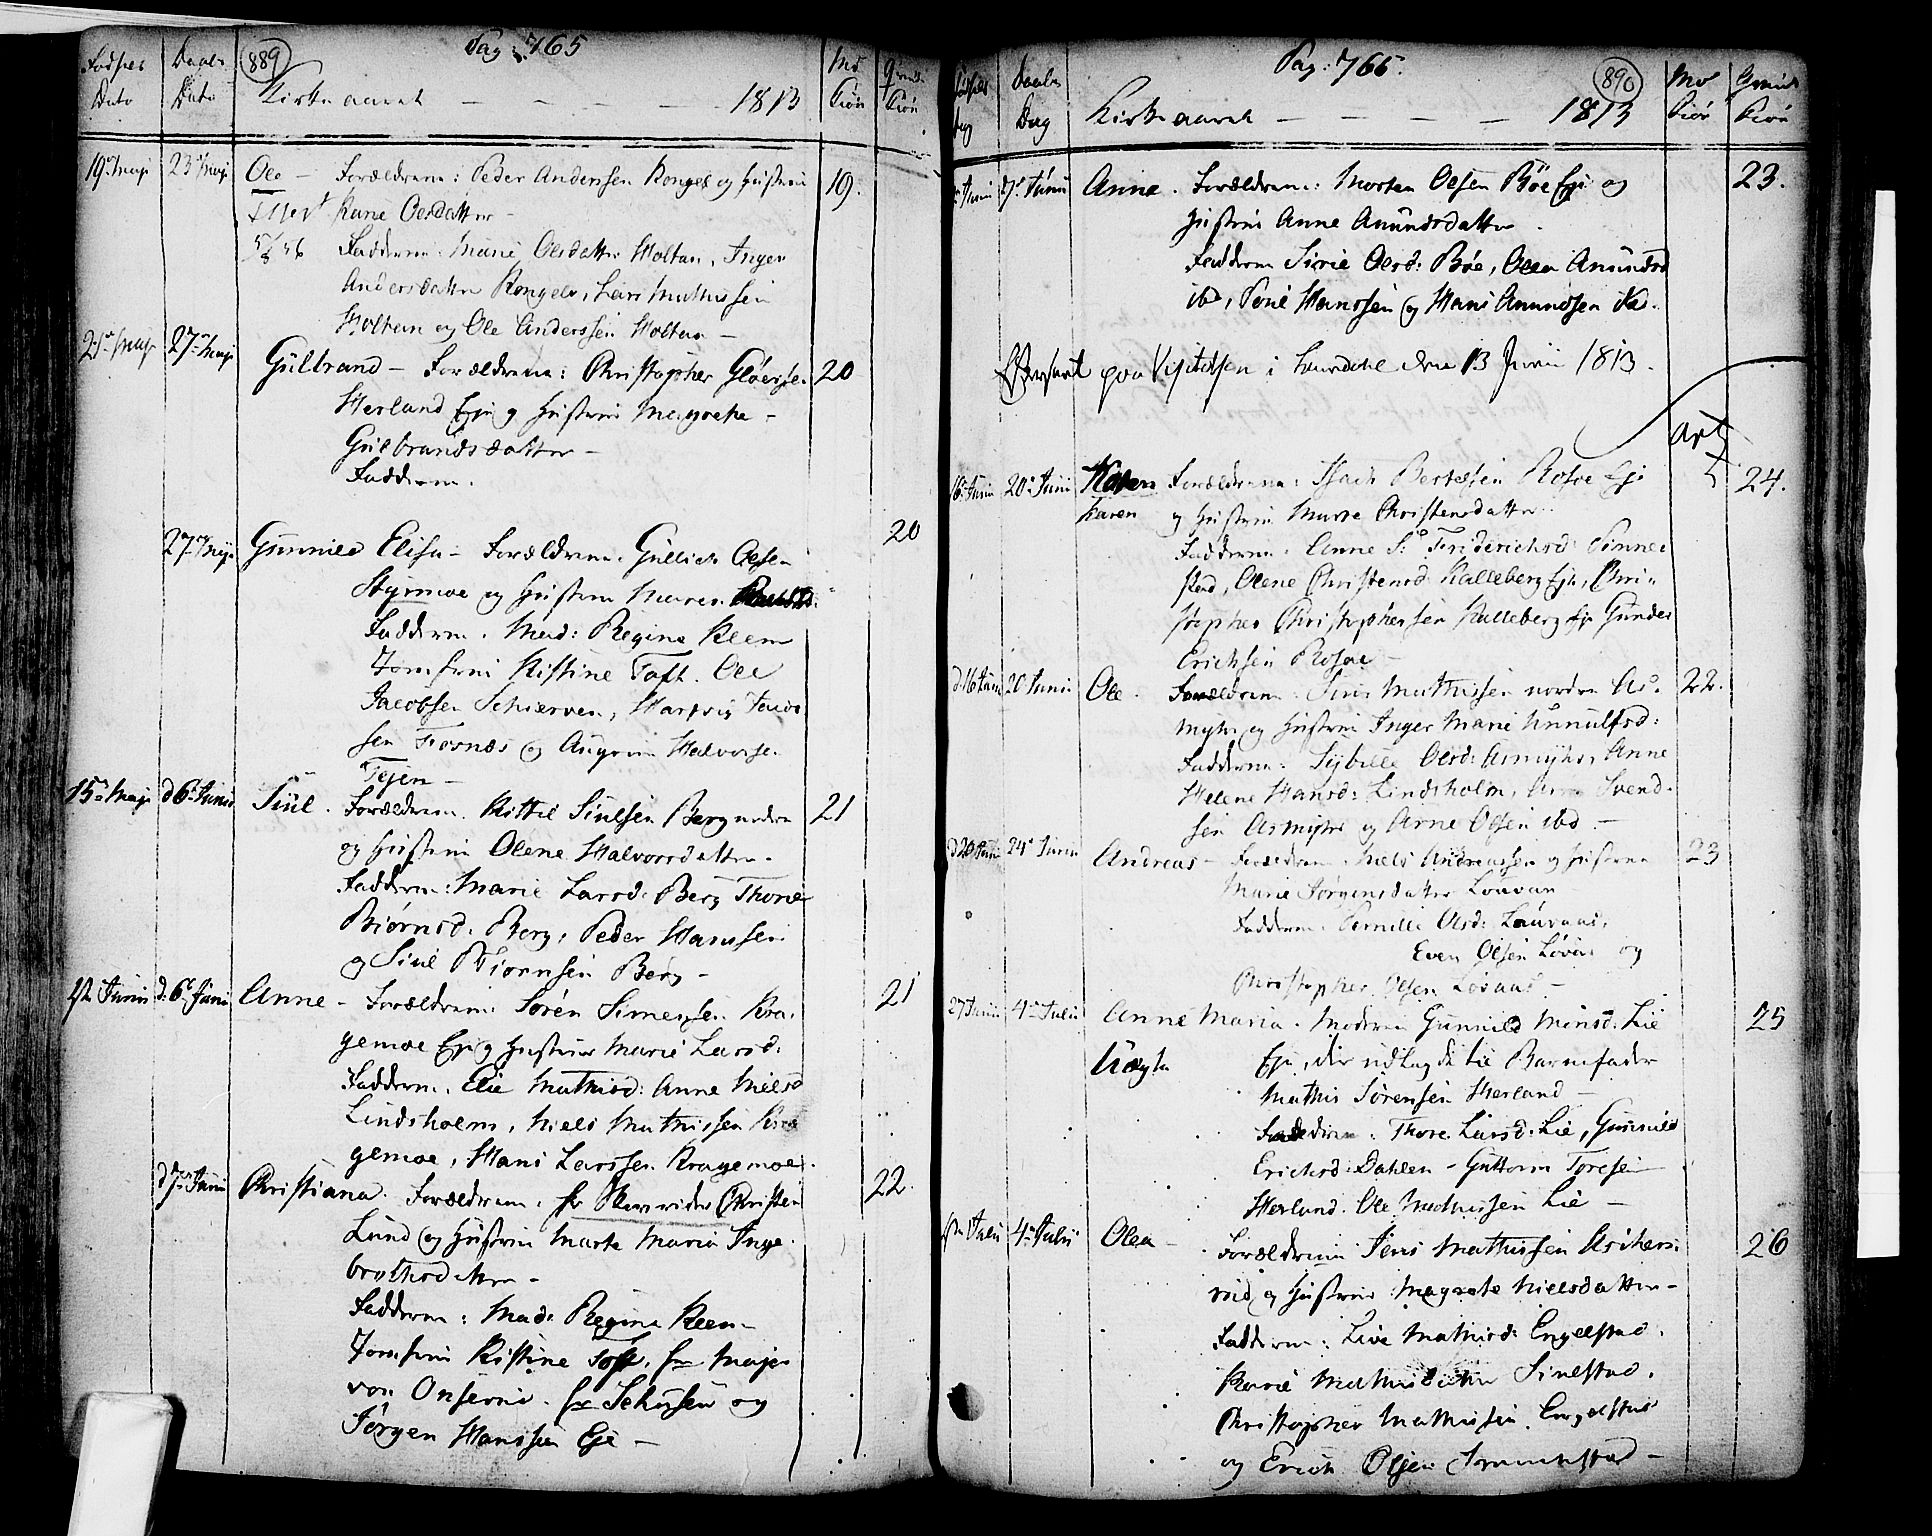 Pag: 765
Fødsels Daabs 889 Md Qvinde
Dato Dato Kirke aaret — — — — 1813 Kiøn Kiøn
19de Maji 23de Maji Ole — Forældrene: Peder Anderssen Kongel og Hustrue 19.
Karie Olesdatter —
Faddere: Marie Olesdatter Holtan, Inger
Andersdatter Kongels, Lars Mathissen
Holtan og Ole Anderssen Holtan —
27de Maji Gulbrand — Forældrene: Christopher Gloersøe 20
Herland Eje og Hustrue Magrethe —
Gulbrandsdatter —
Faddere.
27de Maji Gunnild Elisa — Forældrene. Gullich Olsen 20
Styrmoe og Hustrue Maren
Faddere. Mad: Regina Kleen
Jomfrue Kistine Toft. Ole
Jacobsen Schierven, Hartvig
sen Fosnæs og Halvorse
Tejen —
15de Maji d 6te Junii Siul. Forældrene. Kittil Siulsen Berg nedre 21
og Hustrue Olene Halvorsdatter.
Faddere: Marie Larsd: Berg Thore
Biørnsd: Berg, Peder Hanssen
og Siul Biørnsen Berg —
Junii d: 6te Junii Anne — Forældrene: Søren Simensen Kra- 21
gemoe Eje og Hustrue Marie Larsd:
Faddere. Elie Mathisd: Anne Nielsd
Lindsholm, Niels Mathissen Kra
gemoe, Hans Larssen Kragemoe.
d 7de Junii Christiana. Forældrene. Hr Christen 22.
Lund og Hustrue Marte Maria Inge-
brethsdatter —
Faddere: Mad: Regina Kleen —
Jomfrue Kistine Toft, Hr Major
von Hr Schusen og
Jørgen Hanssen Eje —
Pag: 766.
Daabs 890 Md Qvinde
Dag Kirke aaret — — — — 1813 Kiøn Kiøn
Junii 7de Junii Anne. Forældrene: Morten Olsen Bøe Eje og 23.
Hustrue Anne Amundsdatter.
Faddere Sirie Olesd: Bøe, Olea Amundsd
ibd, Hanssen og Hans Amundsen
paa Visitatsen i Laurdahl den 13 Junii 1813.
16de Junii 20de Junii Karen Forældrene: Isach Bertelsen Rosoe Eje 24.
Karen og Hustrue Marte Christensdatter.
Faddere: Anne S: Friderichsd:
stad, Olene Christensd: Kalleberg Eje, Chri-
stopher Christophersen Kalleberg Eje Gunder
Erichsen Rosoe —
d 16 Junii 20 Junii Ole. Forældrene. Jens Mathissen nordre As- 22.
myhr og Hustrue Inger Marie Unnulfsd:
Faddere. Sybille Olesd: Asmyhr, Anne
Helene Hansd: Lindsholm, Svend-
sen Asmyhr og Arne Olsen ibd —
24de Junii Andreas — Forældrene. Niels Andreassen og Hustrue 23
Marie Jørgensdatter
Faddere. Pernille Olsd: Løvaas,
Even Olsen Løvaas og
Christopher Olsen Løvaas —
27 Junii 4de Julii Anne Maria. Moderen Gunnild Monsd: Lie 25
Uægte Eje, der udlagde til Barnefader
Mathis Sørensen Herland —
Faddere: Thore Larsd: Lie, Gunnild
Erichsd: Dahlen — Guttorm Toresen
Herland. Ole Mathissen Lie —
Julii 4de Julii Olea — Forældrene Jens Mathissen 26
og Hustrue Magrete Nielsdatter —
Faddere: Live Mathisd: Engelstad.
Karie Mathisdatter Sinestad.
Christopher Mathissen Engelstad
og Erich Olsen —